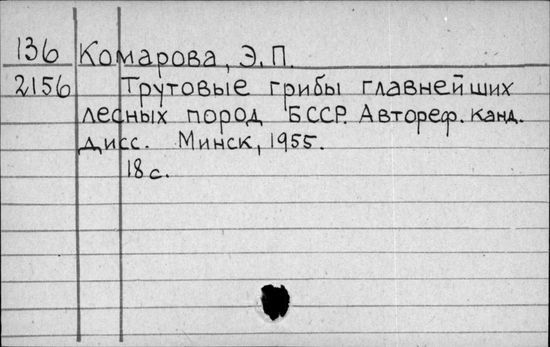 136 Комарова, Э.П.
2156 Трутовые грибы главнейших
лесных пород БССР. Автореф. канд.
дисс. Минск, 1955.
18 с.